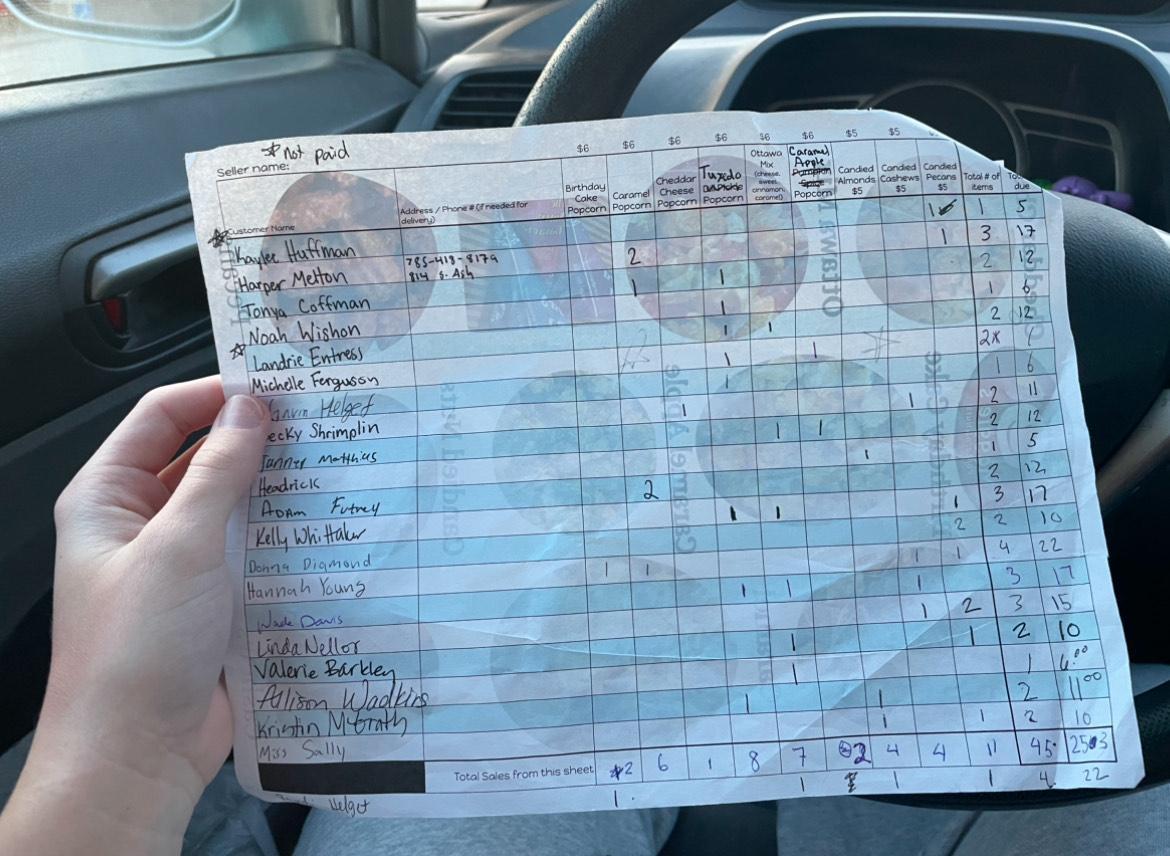 * not paid
Seller name:
$6 $6 $6 $6 $6 $6 $5 $5
Customer Name
Address / Phone # (if needed for delivery)
Birthday Cake Popcorn
Caramel Popcorn
Cheddar Cheese Popcorn
Tuxedo Popcorn
Ottawa Mix (cheese, sweet cinnamon, caramel)
Caramel Apple Pumpkin Spice Popcorn
Candied Almonds $5
Candied Cashews $5
Candied Pecans $5
Total # of items
due
1 ✓ 1 5
Kaylee Huffman 785-418-8179 2 1 3 17
Harper Melton 814 S. Ash 1 1 2 12
Tonya Coffman 1 1 6
Noah Wishon 1 1 2 12
Landrie Entress 1 1 2*
Michelle Ferguson 1 1 6
Helget 1 1 2 11
ecky Shrimplin 1 1 2 12
Tanner Matthias 1 1 5
Headrick 2 2 12
Adam Futrey 1 1 1 3 17
Kelly Whittaker 2 2 10
Donna Diamond 1 1 1 1 4 22
Hannah Young 1 1 1 3 17
Wade Davis 1 2 3 15
Linda Nellor 1 2 10
Valerie Barkley 1 1 6.00
Allison Wadkins 1 1 2 11.00
Kristin McGrath 1 1 2 10
Miss Sally
Total Sales from this sheet 2 6 1 8 7 2 4 4 11 45
Helget 1 1 1 1 4 22